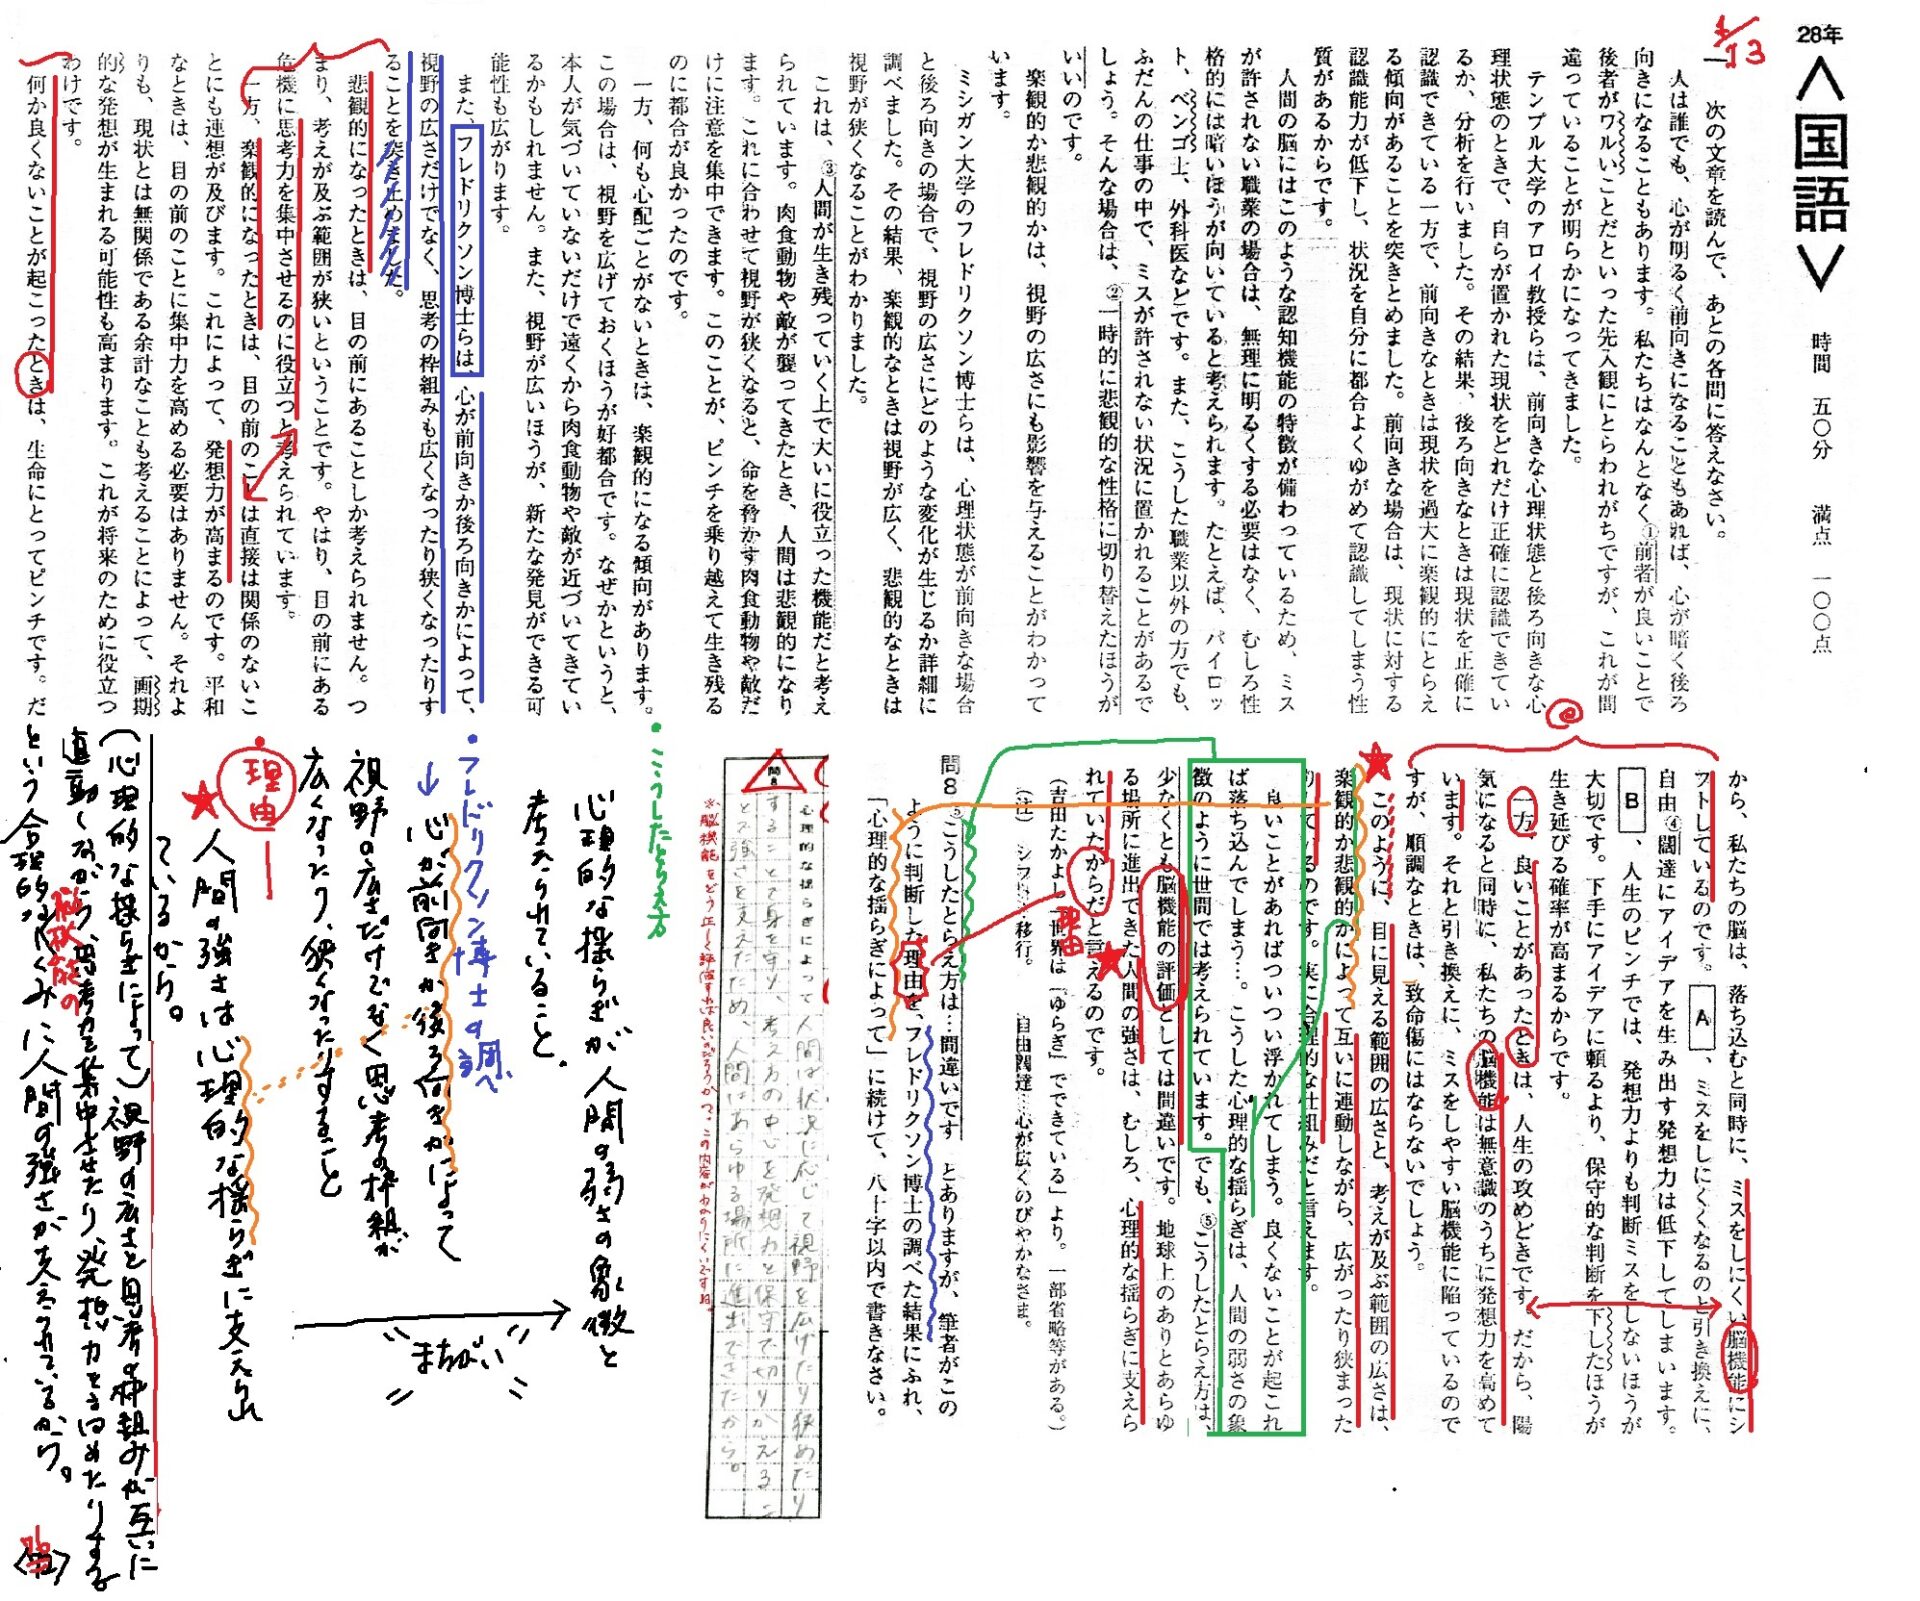 28年
＜国語＞
時間　五〇分　満点　一〇〇点
一　次の文章を読んで、あとの各問に答えなさい。
人は誰でも、心が明るく前向きになることもあれば、心が暗く後ろ
向きになることもあります。私たちはなんとなく①前者が良いことで
後者がワルいことだといった先入観にとらわれがちですが、これが間
違っていることが明らかになってきました。
テンプル大学のアロイ教授らは、前向きな心理状態と後ろ向きな心
理状態のときで、自らが置かれた現状をどれだけ正確に認識できてい
るか、分析を行いました。その結果、後ろ向きなときは現状を正確に
認識できている一方で、前向きなときは現状を過大に楽観的にとらえ
る傾向があることを突きとめました。前向きな場合は、現状に対する
認識能力が低下し、状況を自分に都合よくゆがめて認識してしまう性
質があるからです。
人間の脳にはこのような認知機能の特徴が備わっているため、ミス
が許されない職業の場合は、無理に明るくする必要はなく、むしろ性
格的には暗いほうが向いていると考えられます。たとえば、パイロッ
ト、ベンゴ士、外科医などです。また、こうした職業以外の方でも、
ふだんの仕事の中で、ミスが許されない状況に置かれることがあるで
しょう。そんな場合は、②一時的に悲観的な性格に切り替えたほうが
いいのです。
楽観的か悲観的かは、視野の広さにも影響を与えることがわかって
います。
ミシガン大学のフレドリクソン博士らは、心理状態が前向きな場合
と後ろ向きの場合で、視野の広さにどのような変化が生じるか詳細に
調べました。その結果、楽観的なときは視野が広く、悲観的なときは
視野が狭くなることがわかりました。
これは、③人間が生き残っていく上で大いに役立った機能だと考え
られています。肉食動物や敵が襲ってきたとき、人間は悲観的になり
ます。これに合わせて視野が狭くなると、命を脅かす肉食動物や敵だ
けに注意を集中できます。このことが、ピンチを乗り越えて生き残る
のに都合が良かったのです。
一方、何も心配ごとがないときは、楽観的になる傾向があります。
この場合は、視野を広げておくほうが好都合です。なぜかというと、
本人が気づいていないだけで遠くから肉食動物や敵が近づいてきてい
るかもしれません。また、視野が広いほうが、新たな発見ができる可
能性も広がります。
また、フレドリクソン博士らは、心が前向きか後ろ向きかによって、
視野の広さだけでなく、思考の枠組みも広くなったり狭くなったりす
ることを突き止めました。
悲観的になったときは、目の前にあることしか考えられません。つ
まり、考えが及ぶ範囲が狭いということです。やはり、目の前にある
危機に思考力を集中させるのに役立つと考えられています。
一方、楽観的になったときは、目の前のことは直接は関係のないこ
とにも連想が及びます。これによって、発想力が高まるのです。平和
なときは、目の前のことに集中力を高める必要はありません。それよ
りも、現状とは無関係である余計なことも考えることによって、画期
的な発想が生まれる可能性も高まります。これが将来のために役立つ
わけです。
何か良くないことが起こったときは、生命にとってピンチです。だ
から、私たちの脳は、落ち込むと同時に、ミスをしにくい脳機能にシ
フトしているのです。　A　、ミスをしにくくなるのと引き換えに、
自由④闊達にアイデアを生み出す発想力は低下してしまいます。
B　、人生のピンチでは、発想力よりも判断ミスをしないほうが
大切です。下手にアイデアに頼るより、保守的な判断を下したほうが
生き延びる確率が高まるからです。
一方、良いことがあったときは、人生の攻めどきです。だから、陽
気になると同時に、私たちの脳機能は無意識のうちに発想力を高めて
います。それと引き換えに、ミスをしやすい脳機能に陥っているので
すが、順調なときは、致命傷にはならないでしょう。
このように、目に見える範囲の広さと、考えが及ぶ範囲の広さは、
楽観的か悲観的かによって互いに連動しながら、広がったり狭まった
りしているのです。実に合理的な仕組みだと言えます。
良いことがあればついつい浮かれてしまう。良くないことが起これ
ば落ち込んでしまう…。こうした心理的な揺らぎは、人間の弱さの象
徴のように世間では考えられています。でも、⑤こうしたとらえ方は、
少なくとも脳機能の評価としては間違いです。地球上のありとあらゆ
る場所に進出できた人間の強さは、むしろ、心理的な揺らぎに支えら
れていたからだと言えるのです。
理由
（吉田たかよし「世界は「ゆらぎ」でできている」より。一部省略等がある。）
（注）　シフト…移行。　自由闊達…心が広くのびやかなさま。
問８　⑤こうしたとらえ方は…間違いです　とありますが、筆者がこの
ように判断した理由を、フレドリクソン博士の調べた結果にふれ、
「心理的な揺らぎによって」に続けて、八十字以内で書きなさい。
問８
心理的な揺らぎによって人間は状況に応じて視野を広げたり狭めたり
することで身を守り、考え方の中心を発想力と保守で切りかえるこ
とで強さを支えたため、人間はあらゆる場所に進出できたから。
・こうしたとらえ方
心理的な揺らぎが人間の弱さの象徴と
考えられていること。
・フレドリクソン博士の調べ
↓
心が前向きか後ろ向きかによって
視野の広さだけでなく思考の枠組が
広くなったり、狭くなったりすること
まちがい
・理由
★人間の強さは心理的な揺らぎに支えられ
ているから。
（心理的な揺らぎによって）視野の広さと思考の枠組みが互いに
連動しながら、思考力を集中させたり、発想力を高めたりする
脳機能の
という合理的なしくみに人間の強さが支えられているから。